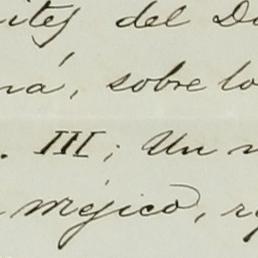 ites del D
na, sobre lo
. III; Un
mejico, r